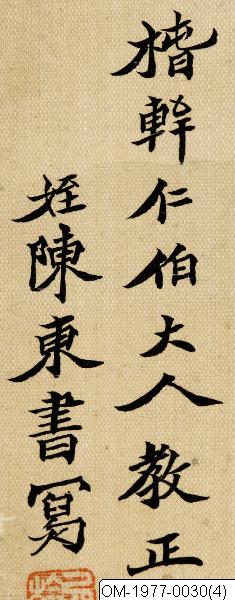 楷軒仁伯大人教正
姪陳東書寫
OM-1977-0030(4)